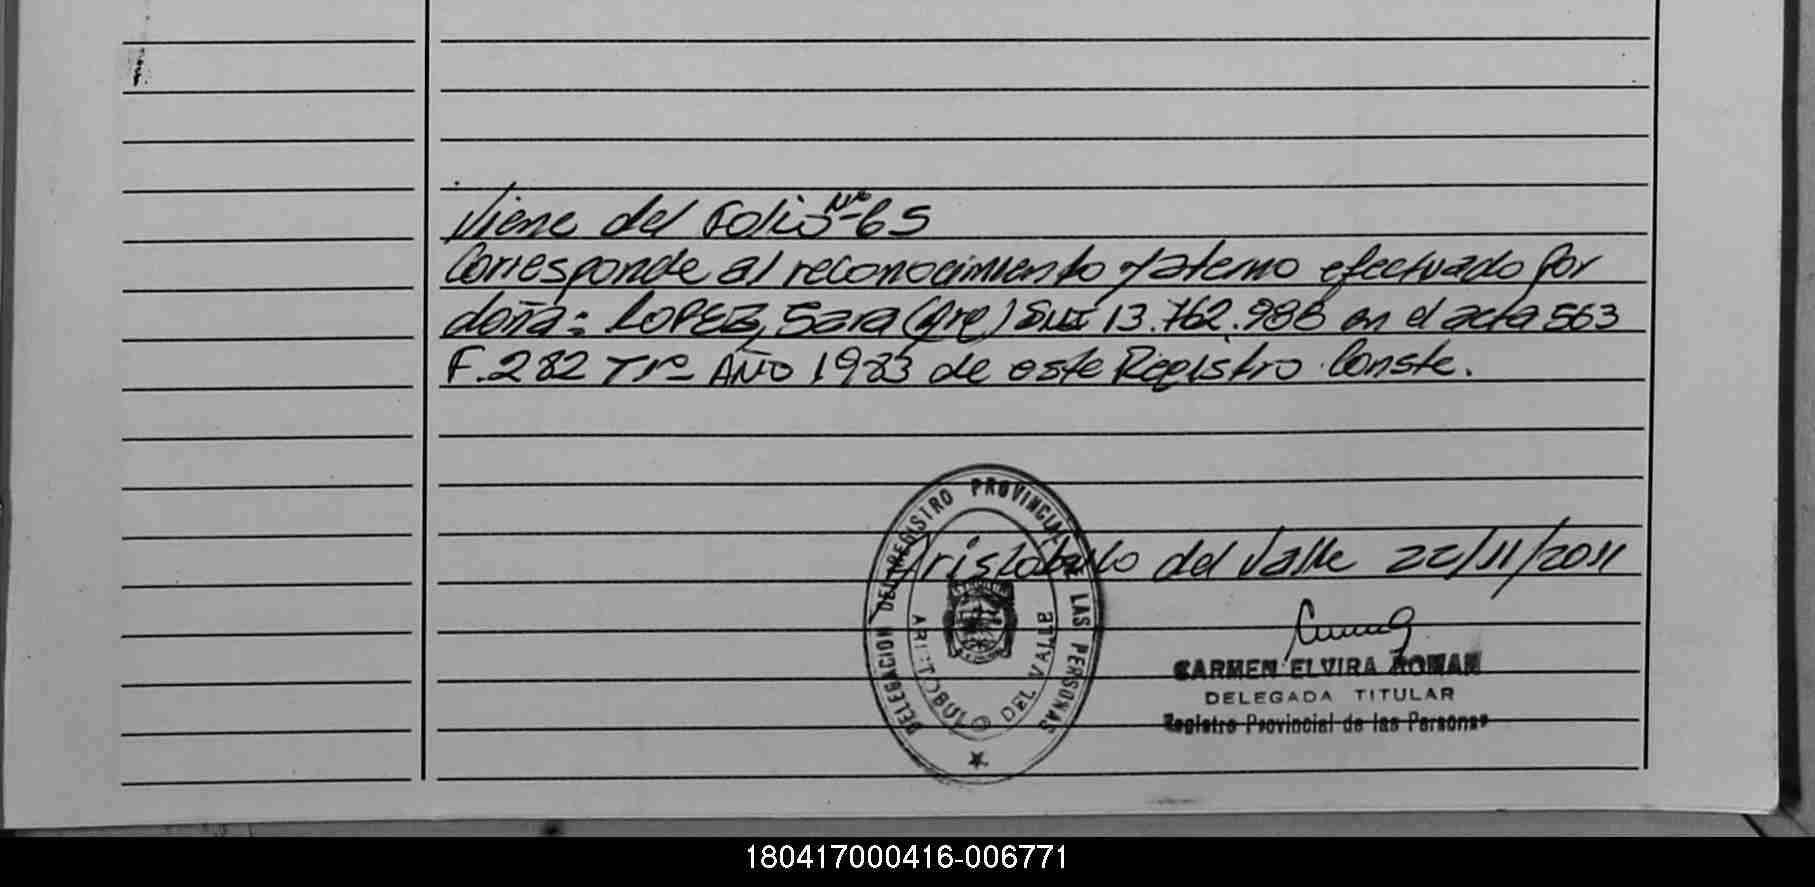 Viene del Folio Nº-65
Corresponde al reconocimiento Materno efectuado por
doña: LOPEZ, Sara (Arg) DNI 13.762.988 en el acta 563
F. 282 Tº 1º AÑO 1983 de este Registro. Conste.
DELEGACION DEL REGISTRO PROVINCIAL DE LAS PERSONAS
ARISTOBULO DEL VALLE
Aristóbulo del Valle 22/11/2011
CARMEN ELVIRA ROMAN
DELEGADA TITULAR
Registro Provincial de las Personas
180417000416-006771